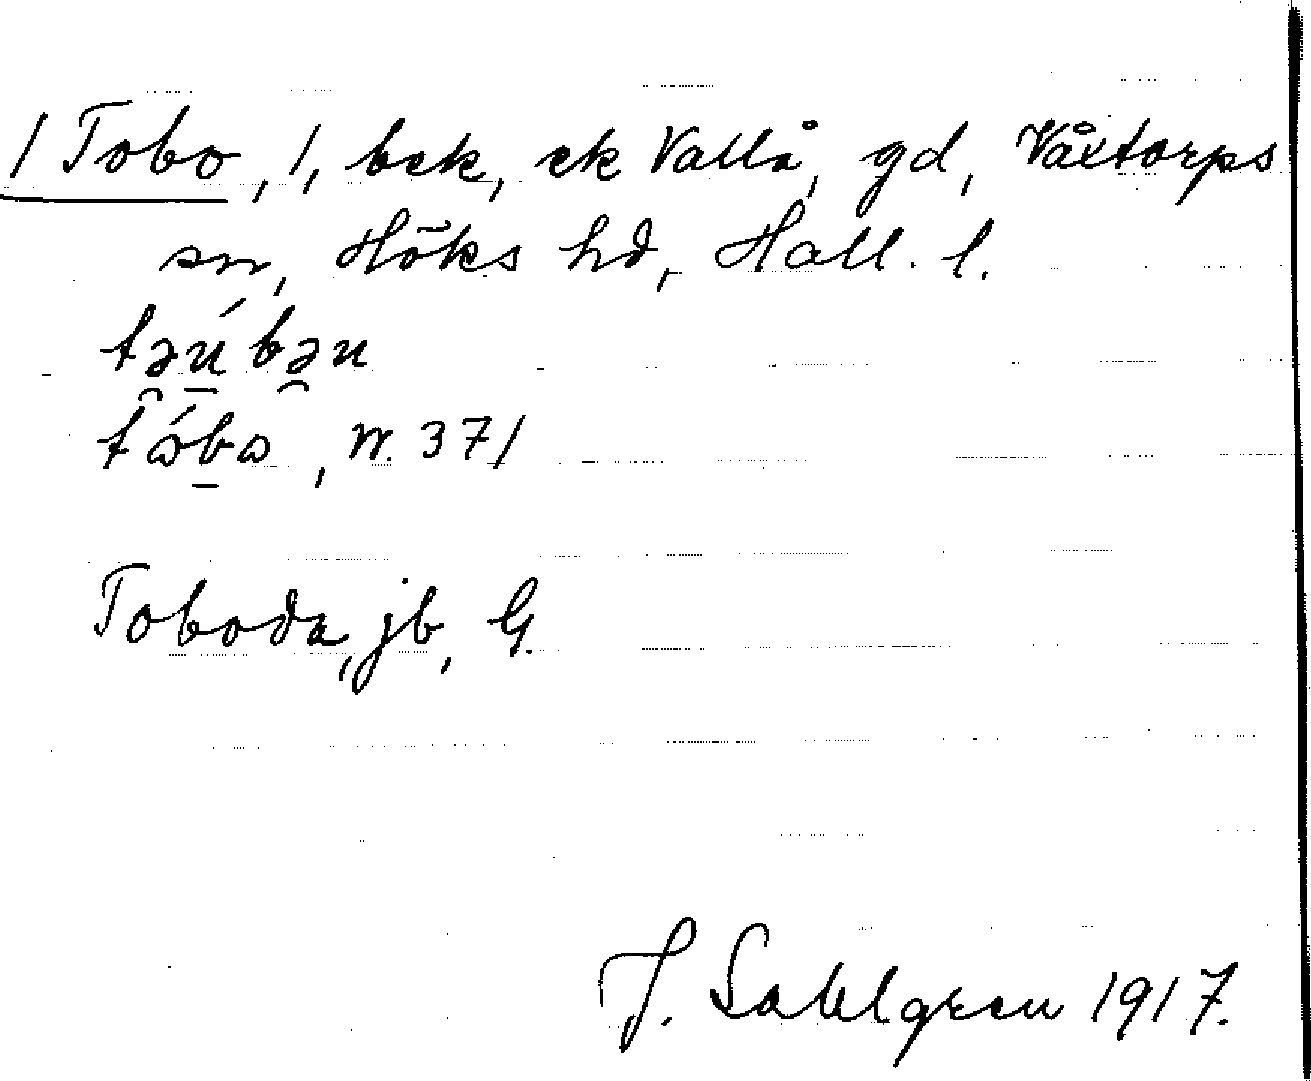 1 Tobo, 1, bek, ek Vallå, gd, Våxtorps
sn, Höks hd, Hall. l.
tə̯ú̱bə̯u
tɷ́ḇɷ, N. 371
Toboda, jb, G.
J. Sahlgren 1917.